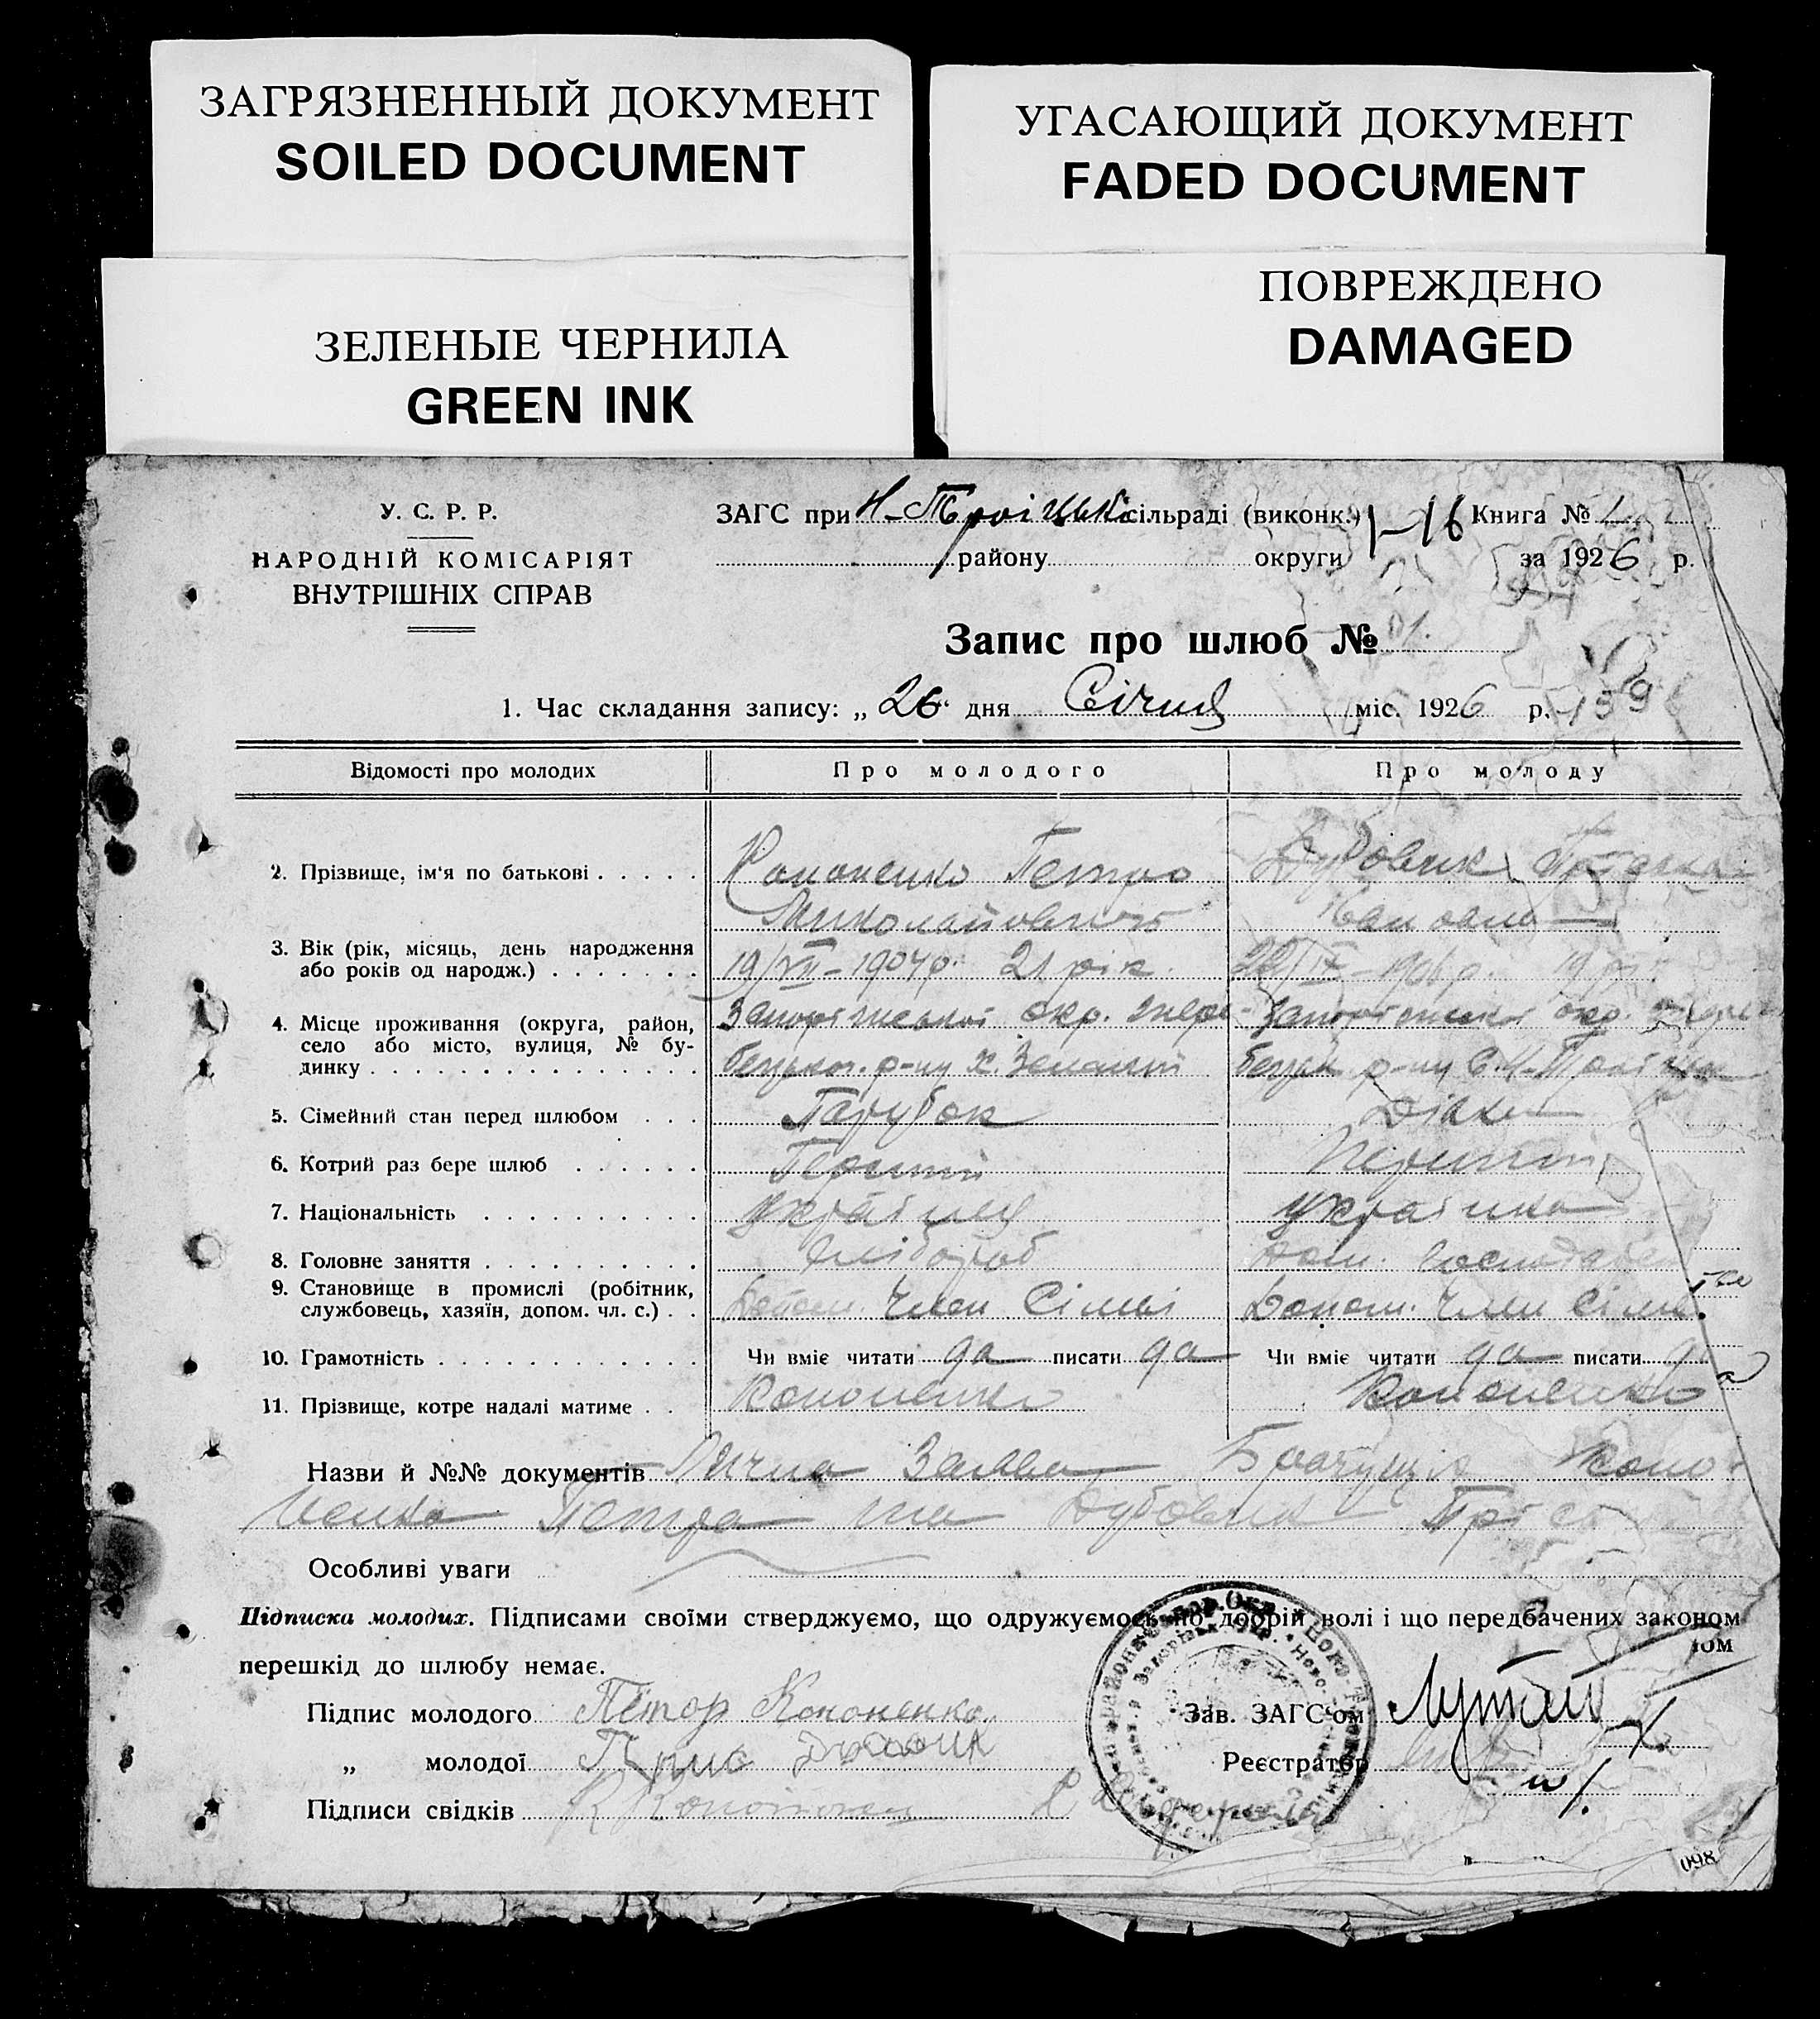 ЗАГРЯЗНЕННЫЙ ДОКУМЕНТ
SOILED DOCUMENT
УГАСАЮЩИЙ ДОКУМЕНТ
FADED DOCUMENT
ЗЕЛЕНЫЕ ЧЕРНИЛА
GREEN INK
ПОВРЕЖДЕНО
DAMAGED
У. С. Р. Р.
НАРОДНІЙ КОМІСАРІЯТ
ВНУТРІШНІХ СПРАВ
ЗАГС при Н-Троіцькі сільраді (виконк.) 1-16 Книга № 1
району округи за 1926 р.
Запис про шлюб № 01.
1. Час складання запису: „ 26 дня Січня міс. 1926 р. 159
Відомості про молодих Про молодого Про молоду
2. Прізвище, ім'я по батькові Кононенко Петро Дубовик
Миколайович
3. Вік (рік, місяць, день народження або років од народж.) 19/VII-1904р. 21 рік. 22/IX-1906р. 19 р
4. Місце проживання (округа, район, Запоріжської окр. Запоріжської окр.
село або місто, вулиця, № бу- р-ну х. р-ну с. Н-Троіцьк
динку
5. Сімейний стан перед шлюбом Парубок Дівка
6. Котрий раз бере шлюб Перший Перший
7. Національність Українец Українка
8. Головне заняття Хлібороб Дом. Господарст
9. Становище в промислі (робітник,
службовець, хазяїн, допом. чл. с.) Допом. Член Сімьі Допом. Член Сімьі
10. Грамотність Чи вміє читати да писати да Чи вміє читати да писати да
11. Прізвище, котре надалі матиме Кононенко Кононенко
Назви й №№ документів Лична Заява Брачущіх Коно-
ненка Петра та Дубовик
Особливі уваги
Підписка молодих. Підписами своїми стверджуємо, що одружуємось по добрій волі і що передбачених законом
перешкід до шлюбу немає.
Підпис молодого Пётор Кононенко Зав. ЗАГС'ом
„ молодої Дубовик Реєстратор
Підписи свідків
098